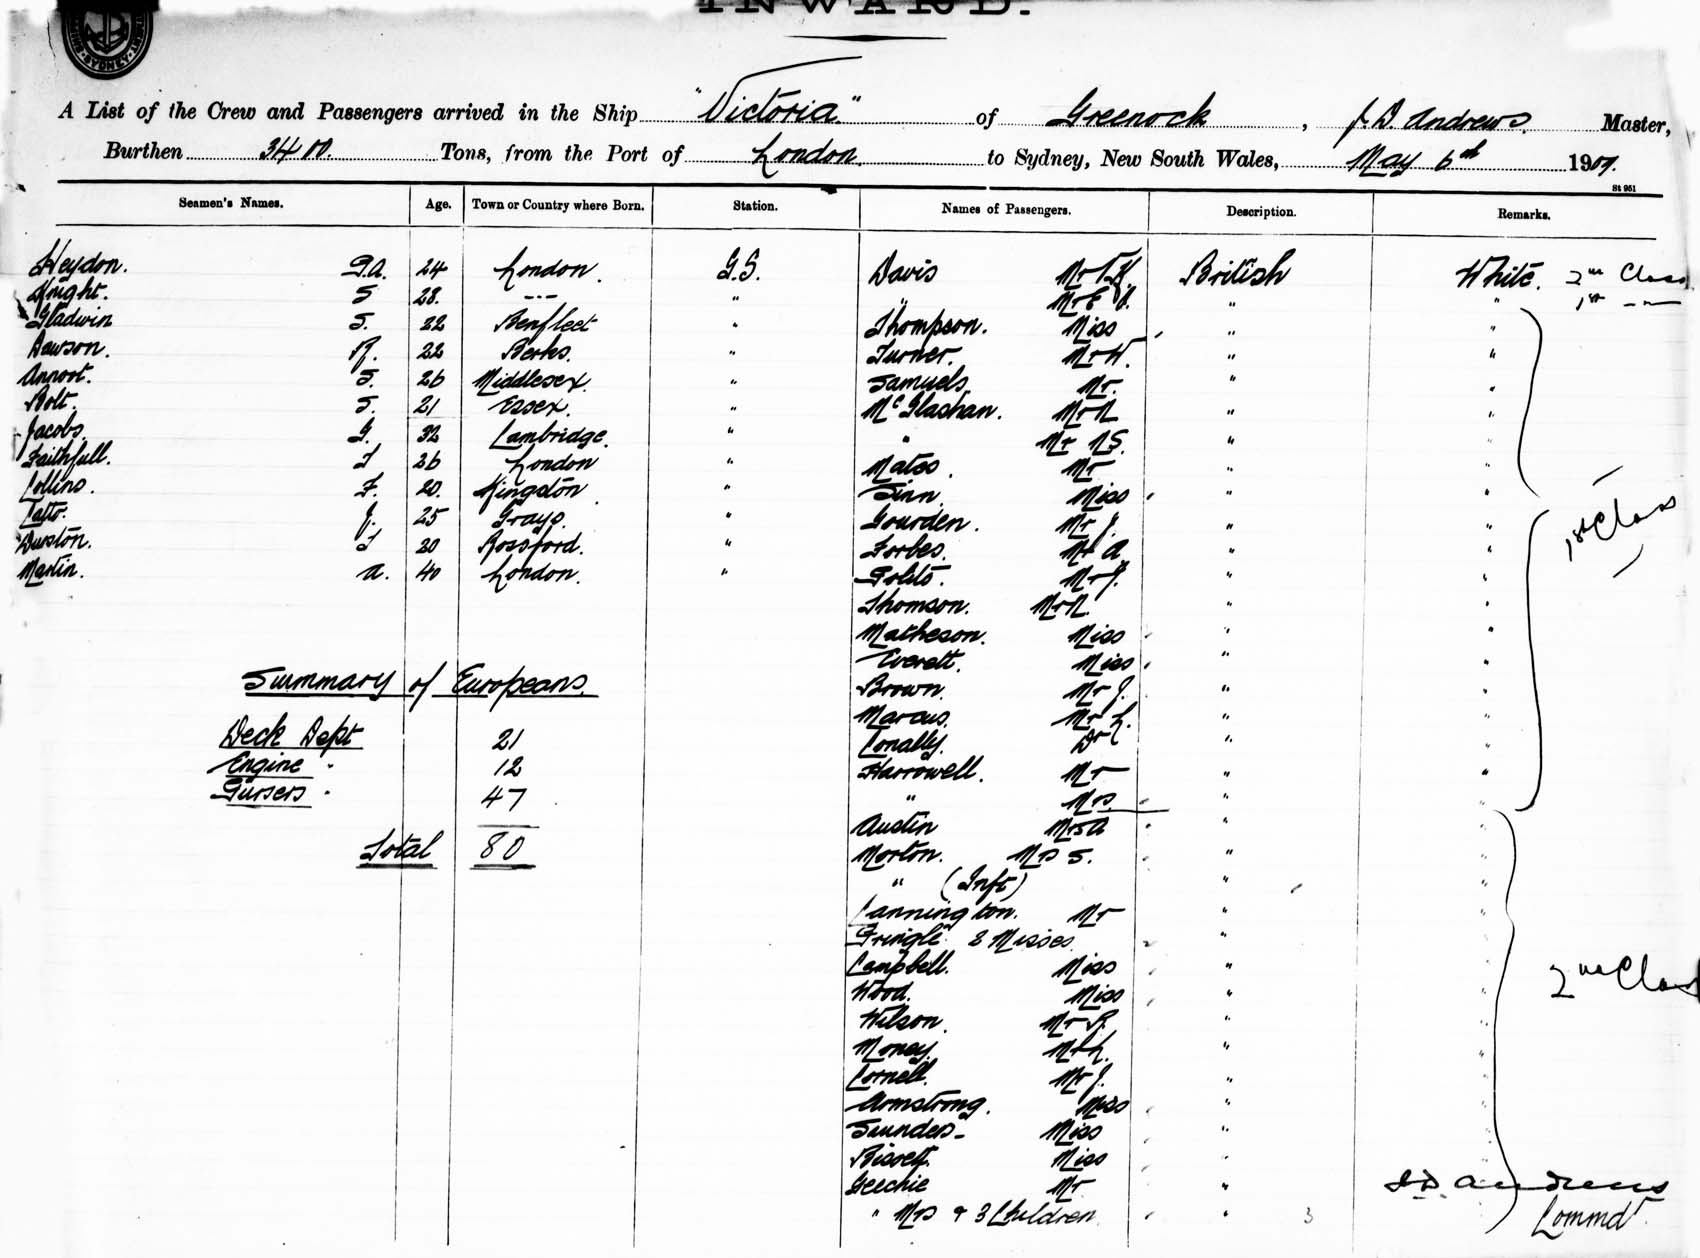 INWARD.
SYDNEY
A List of the Crew and Passengers arrived in the Ship "Victoria" of Greenock, J.D. Andrews. Master,
Burthen 3400. Tons, from the Port of London. to Sydney, New South Wales, May 6th 1907.
St 951
Seamen's Names. Age. Town or Country where Born. Station. Names of Passengers. Description. Remarks.
Heydon. 24 London. G.S. Davis British White. 2nd Class
Knight. S 28. -- " " Mr E " " 1st --
Gladwin S. 22 Benfleet " Thompson. Miss " "
Dawson. R. 22 Berks. " Turner. Mr W. " "
S. 26 Middlesex. " Samuels Mr. " "
Bolt. S. 21 Essex. " McGlashan. Mr N " "
Jacobs. G. 32 Cambridge. " " Mr N S. " "
Faithfull. 26 London " Mates. Mr " "
Collins. F. 20. Kingston " Miss " "
J. 25 Grays. " Gourden. Mr J. " "
Durston. 20 " Forbes. Mr A. " "
Martin. A. 40 London. " Mr J. " "
Thomson. Mr N. " "
Matheson. Miss " "
Everett. Miss " "
1st Class
Summary of Europeans.
Brown. Mr J. " "
Marcus. Mr L. " "
Deck Dept 21 Conally. Dr " "
Engine " 12 Harrowell. Mr " "
Pursers " 47 " Mrs. " "
Austin Mrs A " "
Total 80 Morton. Mrs S. " "
" (Inft) " "
Cannington. Mr " "
Pringle Misses " "
Campbell. Miss " "
2nd Class
Wood. Miss " "
Wilson. Mr R. " "
Money. Mr L. " "
Cornell. Mr J. " "
Armstrong. Miss " "
Saunders Miss " "
Bissett. Miss " "
Geechie Mr " J D Andrews
" Mrs & 3 Children " 3 Commdr.